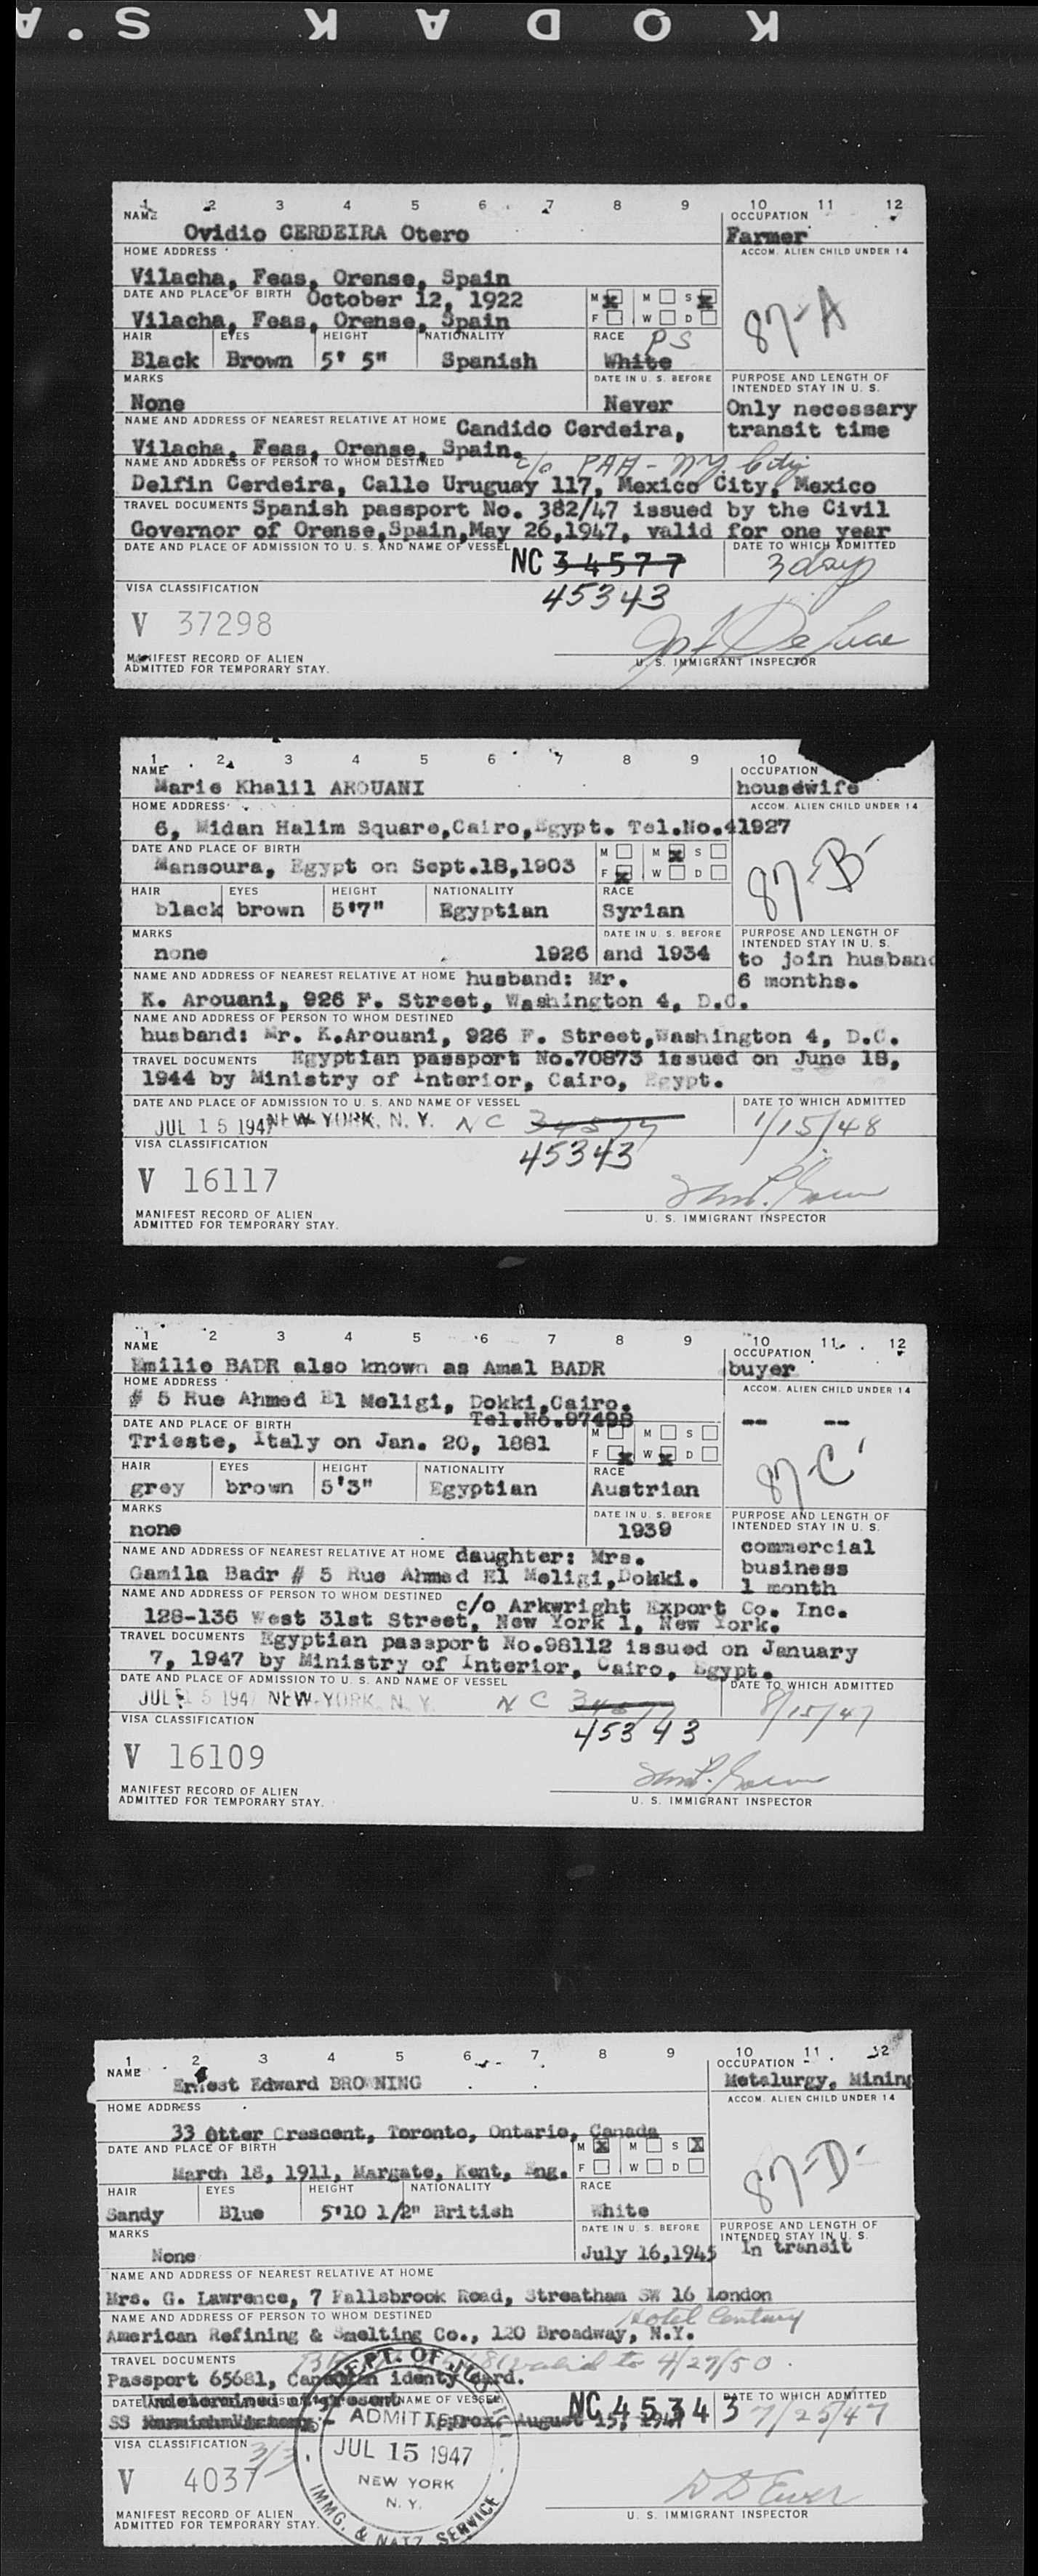 KODAK S.A
1 2 3 4 5 6 7 8 9 10 11 12
NAME
OCCUPATION
Ovidio CERDEIRA Otero
Farmer
HOME ADDRESS
ACCOM. ALIEN CHILD UNDER 14
Vilacha, Feas, Orense, Spain
87-A
DATE AND PLACE OF BIRTH October 12, 1922
M X M S X
Vilacha, Feas, Orense, Spain
F W D
HAIR EYES HEIGHT NATIONALITY RACE PS
Black Brown 5' 5" Spanish White
MARKS DATE IN U. S. BEFORE PURPOSE AND LENGTH OF
INTENDED STAY IN U. S.
None Never Only necessary
transit time
NAME AND ADDRESS OF NEAREST RELATIVE AT HOME Candido Cerdeira,
Vilacha, Feas, Orense, Spain.
NAME AND ADDRESS OF PERSON TO WHOM DESTINED c/o PAA - NY City
Delfin Cerdeira, Calle Uruguay 117, Mexico City, Mexico
TRAVEL DOCUMENTS Spanish passport No. 382/47 issued by the Civil
Governor of Orense,Spain,May 26,1947, valid for one year
DATE AND PLACE OF ADMISSION TO U. S. AND NAME OF VESSEL DATE TO WHICH ADMITTED
NC 34577 3 days
45343
VISA CLASSIFICATION
V 37298
MANIFEST RECORD OF ALIEN
ADMITTED FOR TEMPORARY STAY.
U. S. IMMIGRANT INSPECTOR
1 2 3 4 5 6 7 8 9 10
NAME
OCCUPATION
Marie Khalil AROUANI
housewife
HOME ADDRESS
ACCOM. ALIEN CHILD UNDER 14
6, Midan Halim Square,Cairo,Egypt. Tel.No.41927
87-B-
DATE AND PLACE OF BIRTH
M M X S
Mansoura, Egypt on Sept.18,1903
F X W D
HAIR EYES HEIGHT NATIONALITY RACE
black brown 5'7" Egyptian Syrian
MARKS DATE IN U. S. BEFORE PURPOSE AND LENGTH OF
INTENDED STAY IN U. S.
none 1926 and 1934 to join husband
6 months.
NAME AND ADDRESS OF NEAREST RELATIVE AT HOME husband: Mr.
K. Arouani, 926 F. Street, Washington 4, D.C.
NAME AND ADDRESS OF PERSON TO WHOM DESTINED
husband: Mr. K.Arouani, 926 F. Street,Washington 4, D.C.
TRAVEL DOCUMENTS Egyptian passport No.70873 issued on June 18,
1944 by Ministry of Interior, Cairo, Egypt.
DATE AND PLACE OF ADMISSION TO U. S. AND NAME OF VESSEL DATE TO WHICH ADMITTED
JUL 15 1947 NEW YORK, N. Y. NC 34577 1/15/48
45343
VISA CLASSIFICATION
V 16117
MANIFEST RECORD OF ALIEN
ADMITTED FOR TEMPORARY STAY.
U. S. IMMIGRANT INSPECTOR
1 2 3 4 5 6 7 8 9 10 11 12
NAME
OCCUPATION
Emilie BADR also known as Amal BADR
buyer
HOME ADDRESS
ACCOM. ALIEN CHILD UNDER 14
# 5 Rue Ahmed El Meligi, Dokki,Cairo.
Tel.No.97498
-- --
DATE AND PLACE OF BIRTH
M M S
Trieste, Italy on Jan. 20, 1881
F X W X D
87-C
HAIR EYES HEIGHT NATIONALITY RACE
grey brown 5'3" Egyptian Austrian
MARKS DATE IN U. S. BEFORE PURPOSE AND LENGTH OF
INTENDED STAY IN U. S.
none 1939 commercial
business
1 month
NAME AND ADDRESS OF NEAREST RELATIVE AT HOME daughter: Mrs.
Gamila Badr # 5 Rue Ahmed El Meligi,Dokki.
NAME AND ADDRESS OF PERSON TO WHOM DESTINED c/o Arkwright Export Co. Inc.
128-136 West 31st Street, New York 1, New York.
TRAVEL DOCUMENTS Egyptian passport No.98112 issued on January
7, 1947 by Ministry of Interior, Cairo, Egypt.
DATE AND PLACE OF ADMISSION TO U. S. AND NAME OF VESSEL DATE TO WHICH ADMITTED
JUL 15 1947 NEW YORK, N. Y. NC 34577 8/15/47
45343
VISA CLASSIFICATION
V 16109
MANIFEST RECORD OF ALIEN
ADMITTED FOR TEMPORARY STAY.
U. S. IMMIGRANT INSPECTOR
1 2 3 4 5 6 7 8 9 10 11 12
NAME
OCCUPATION
Ernest Edward BROWNING
Metalurgy, Mining
HOME ADDRESS
ACCOM. ALIEN CHILD UNDER 14
33 Otter Crescent, Toronto, Ontario, Canada
87-D-
DATE AND PLACE OF BIRTH
M X M S X
March 18, 1911, Margate, Kent, Eng.
F W D
HAIR EYES HEIGHT NATIONALITY RACE
Sandy Blue 5'10 1/2" British White
MARKS DATE IN U. S. BEFORE PURPOSE AND LENGTH OF
INTENDED STAY IN U. S.
None July 16,1945 In transit
NAME AND ADDRESS OF NEAREST RELATIVE AT HOME
Mrs. G. Lawrence, 7 Fallsbrook Road, Streatham SW 16 London
NAME AND ADDRESS OF PERSON TO WHOM DESTINED Hotel Century
American Refining & Smelting Co., 120 Broadway, N.Y.
TRAVEL DOCUMENTS valid to 4/27/50.
Passport 65681, Canadian identy card.
DATE Undetermined at present NAME OF VESSEL NC 45343 DATE TO WHICH ADMITTED
SS Approx. August 15, 1947 7/25/47
VISA CLASSIFICATION 3/3
V 4037
DEPT. OF JUSTICE
ADMITTED
JUL 15 1947
NEW YORK
N. Y.
IMMG. & NATZ. SERVICE
MANIFEST RECORD OF ALIEN
ADMITTED FOR TEMPORARY STAY.
U. S. IMMIGRANT INSPECTOR